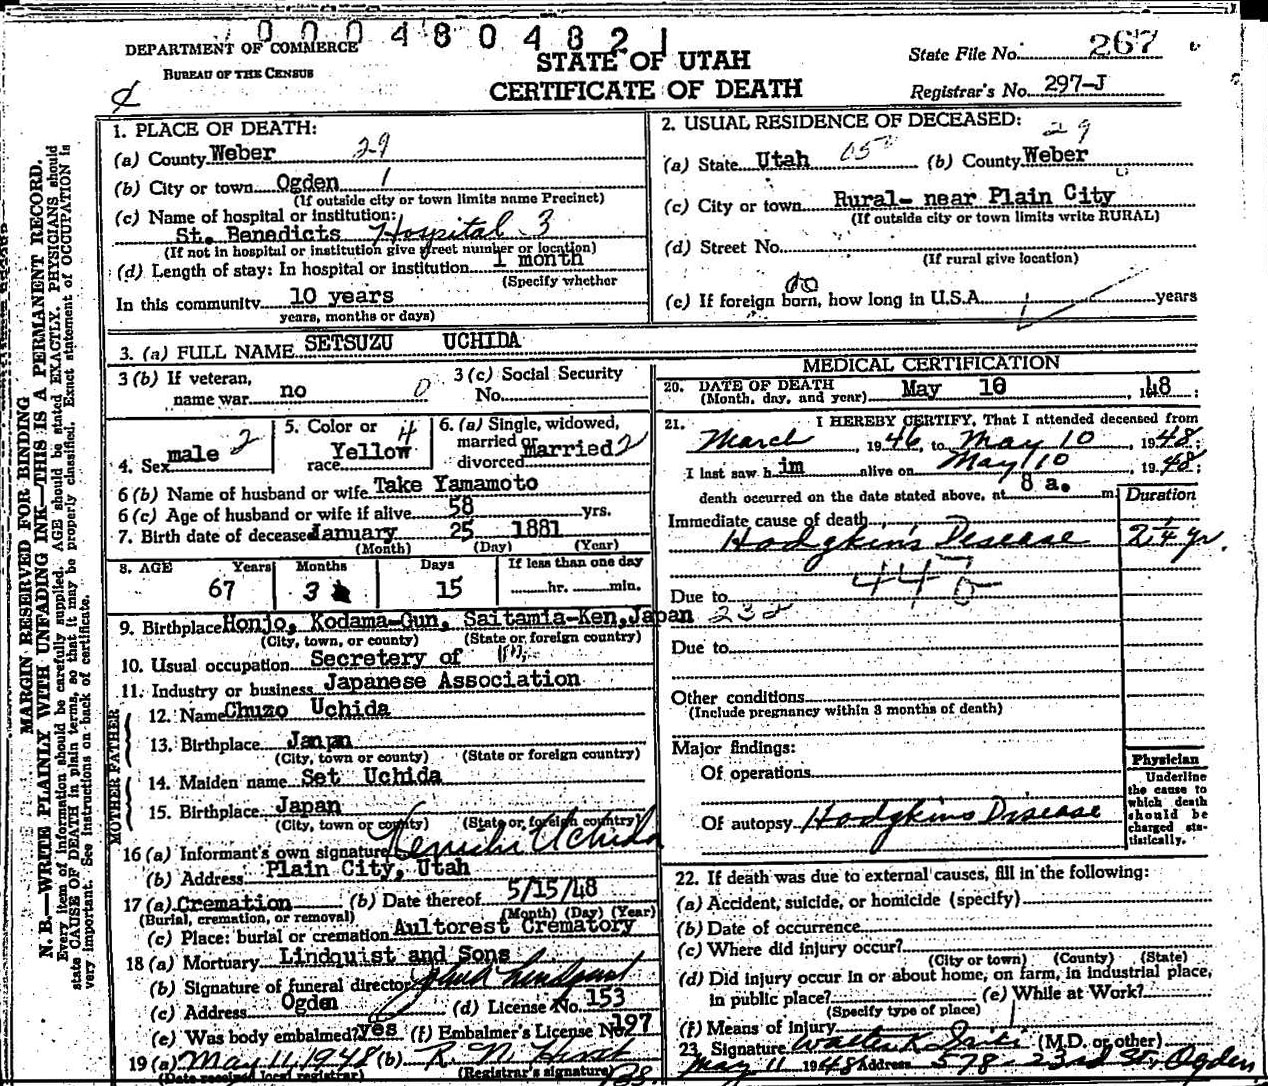 0004804821
DEPARTMENT OF COMMERCE
BUREAU OF THE CENSUS
STATE OF UTAH
CERTIFICATE OF DEATH
State File No. 267
Registrar's No. 297-J
MARGIN RESERVED FOR BINDING
N. B.—WRITE PLAINLY WITH UNFADING INK—THIS IS A PERMANENT RECORD.
Every item of information should be carefully supplied. AGE should be stated EXACTLY. PHYSICIANS should
state CAUSE OF DEATH in plain terms, so that it may be properly classified. Exact statement of OCCUPATION is
very important. See instructions on back of certificate.
1. PLACE OF DEATH:
(a) County Weber 29
(b) City or town Ogden 1
(If outside city or town limits name Precinct)
(c) Name of hospital or institution:
St. Benedicts Hospital 3
(If not in hospital or institution give street number or location)
(d) Length of stay: In hospital or institution 1 month
(Specify whether
In this community 10 years
years, months or days)
2. USUAL RESIDENCE OF DECEASED: 29
(a) State Utah 05 (b) County Weber
(c) City or town Rural- near Plain City
(If outside city or town limits write RURAL)
(d) Street No.
(If rural give location)
(e) If foreign born, how long in U.S.A. years
3. (a) FULL NAME SETSUZU UCHIDA
3 (b) If veteran,
name war no 0
3 (c) Social Security
No.
4. Sex male 2
5. Color or 4
race Yellow
6. (a) Single, widowed,
married or
divorced Married 2
6 (b) Name of husband or wife Take Yamamoto
6 (c) Age of husband or wife if alive 58 yrs.
7. Birth date of deceased January 25 1881
(Month) (Day) (Year)
8. AGE Years Months Days If less than one day
67 3 15 hr. min.
9. Birthplace Honjo, Kodama-Gun, Saitamia-Ken, Japan
(City, town, or county) (State or foreign country)
10. Usual occupation Secretery of
11. Industry or business Japanese Association
FATHER
12. Name Chuzo Uchida
13. Birthplace Japan
(City, town or county) (State or foreign country)
MOTHER
14. Maiden name Set Uchida
15. Birthplace Japan
(City, town or county) (State or foreign country)
16 (a) Informant's own signature Uchida
(b) Address Plain City, Utah
17 (a) Cremation (b) Date thereof 5/15/48
(Burial, cremation, or removal) (Month) (Day) (Year)
(c) Place: burial or cremation Aultorest Crematory
18 (a) Mortuary Lindquist and Sons
(b) Signature of funeral director Lindquist
(c) Address Ogden (d) License No. 153
(e) Was body embalmed? yes (f) Embalmer's License No. 197
19 (a) May 11, 1948 (b) R. N. Hirst
(Date received local registrar) (Registrar's signature)
MEDICAL CERTIFICATION
20. DATE OF DEATH
(Month, day, and year) May 10, 1948
21. I HEREBY CERTIFY, That I attended deceased from
March, 1946, to May 10, 1948;
I last saw h im alive on May 10, 1948;
death occurred on the date stated above, at 8 a. m
Duration
Immediate cause of death
Hodgkin's Disease 2 1/4 yr.
44
Due to 232
Due to
Other conditions
(Include pregnancy within 3 months of death)
Major findings:
Of operations
Of autopsy Hodgkins Disease
Physician
Underline
the cause to
which death
should be
charged sta-
tistically.
22. If death was due to external causes, fill in the following:
(a) Accident, suicide, or homicide (specify)
(b) Date of occurrence
(c) Where did injury occur?
(City or town) (County) (State)
(d) Did injury occur in or about home, on farm, in industrial place,
in public place? (e) While at Work?
(Specify type of place)
(f) Means of injury
23. Signature Walter K. (M.D. or other)
May 11 1948 Address 578 - 23rd St., Ogden